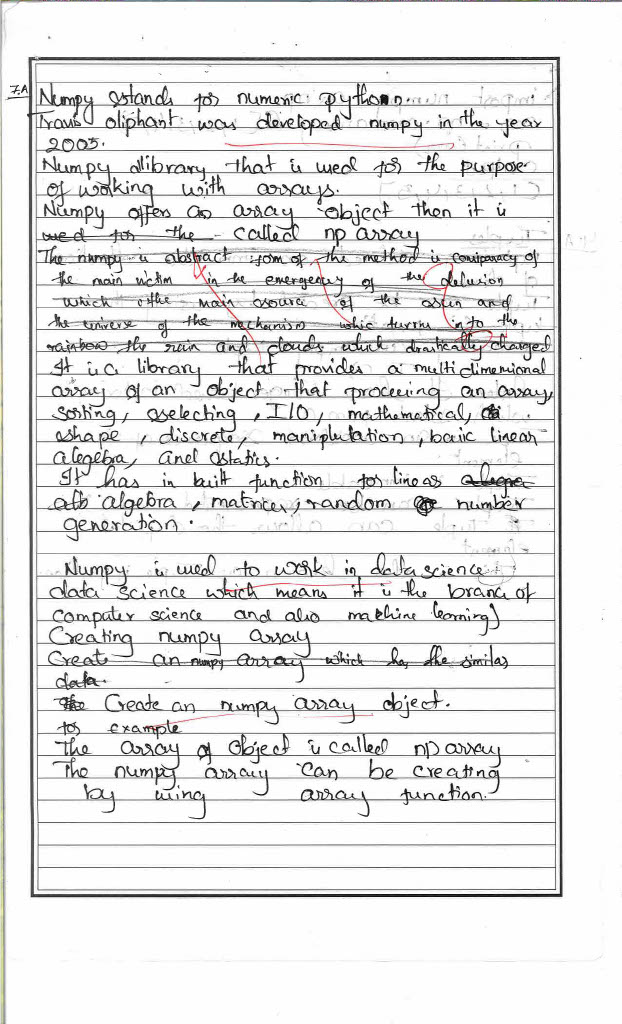 7.A
Numpy stands for numeric python.
Travis oliphant was developed numpy in the year
2005.
Numpy library that is used for the purpose
of working with arrays.
Numpy offers an array object then it is
used for the called np array
The numpy is abstract form of the method is conspiracy of
the main victim in the emergency of the delusion
which the main source of the and
the universe of the mechanism whic turns into the
rainbow the rain and clouds which drastically changed
It is a library that provides a multi dimensional
array of an object that proceeing an array,
sorting, selecting, I/O, mathematical,
shape, discrete, maniplutation, basic linear
alegebra, and statics.
It has in built function for linear
algebra, matrices, random number
generation.
Numpy is used to work in data science
data science which means it is the branc of
computer science and also machine learning)
Creating numpy array
Create an numpy array which has the similar
data.
Create an numpy array object.
for example
The array of Object is called np array
The numpy array can be creating
by using array function.